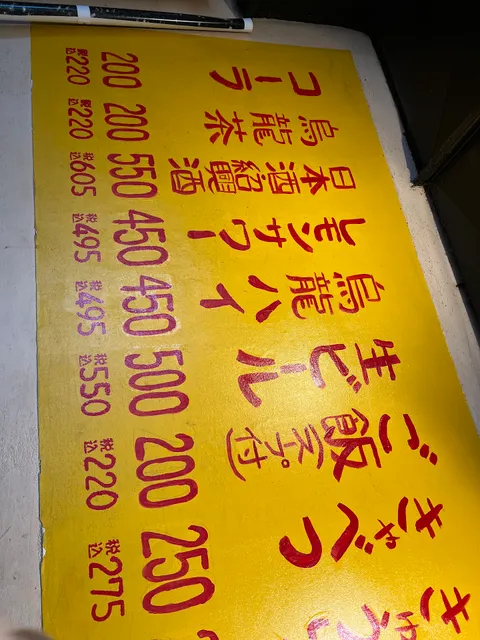 きゅう
きゃべつ 250 税込275
ご飯(スープ付) 200 税込220
生ビール 500 税込550
烏龍ハイ 450 税込495
レモンサワー 450 税込495
日本酒 紹興酒 550 税込605
烏龍茶 200 税込220
コーラ 200 税込220